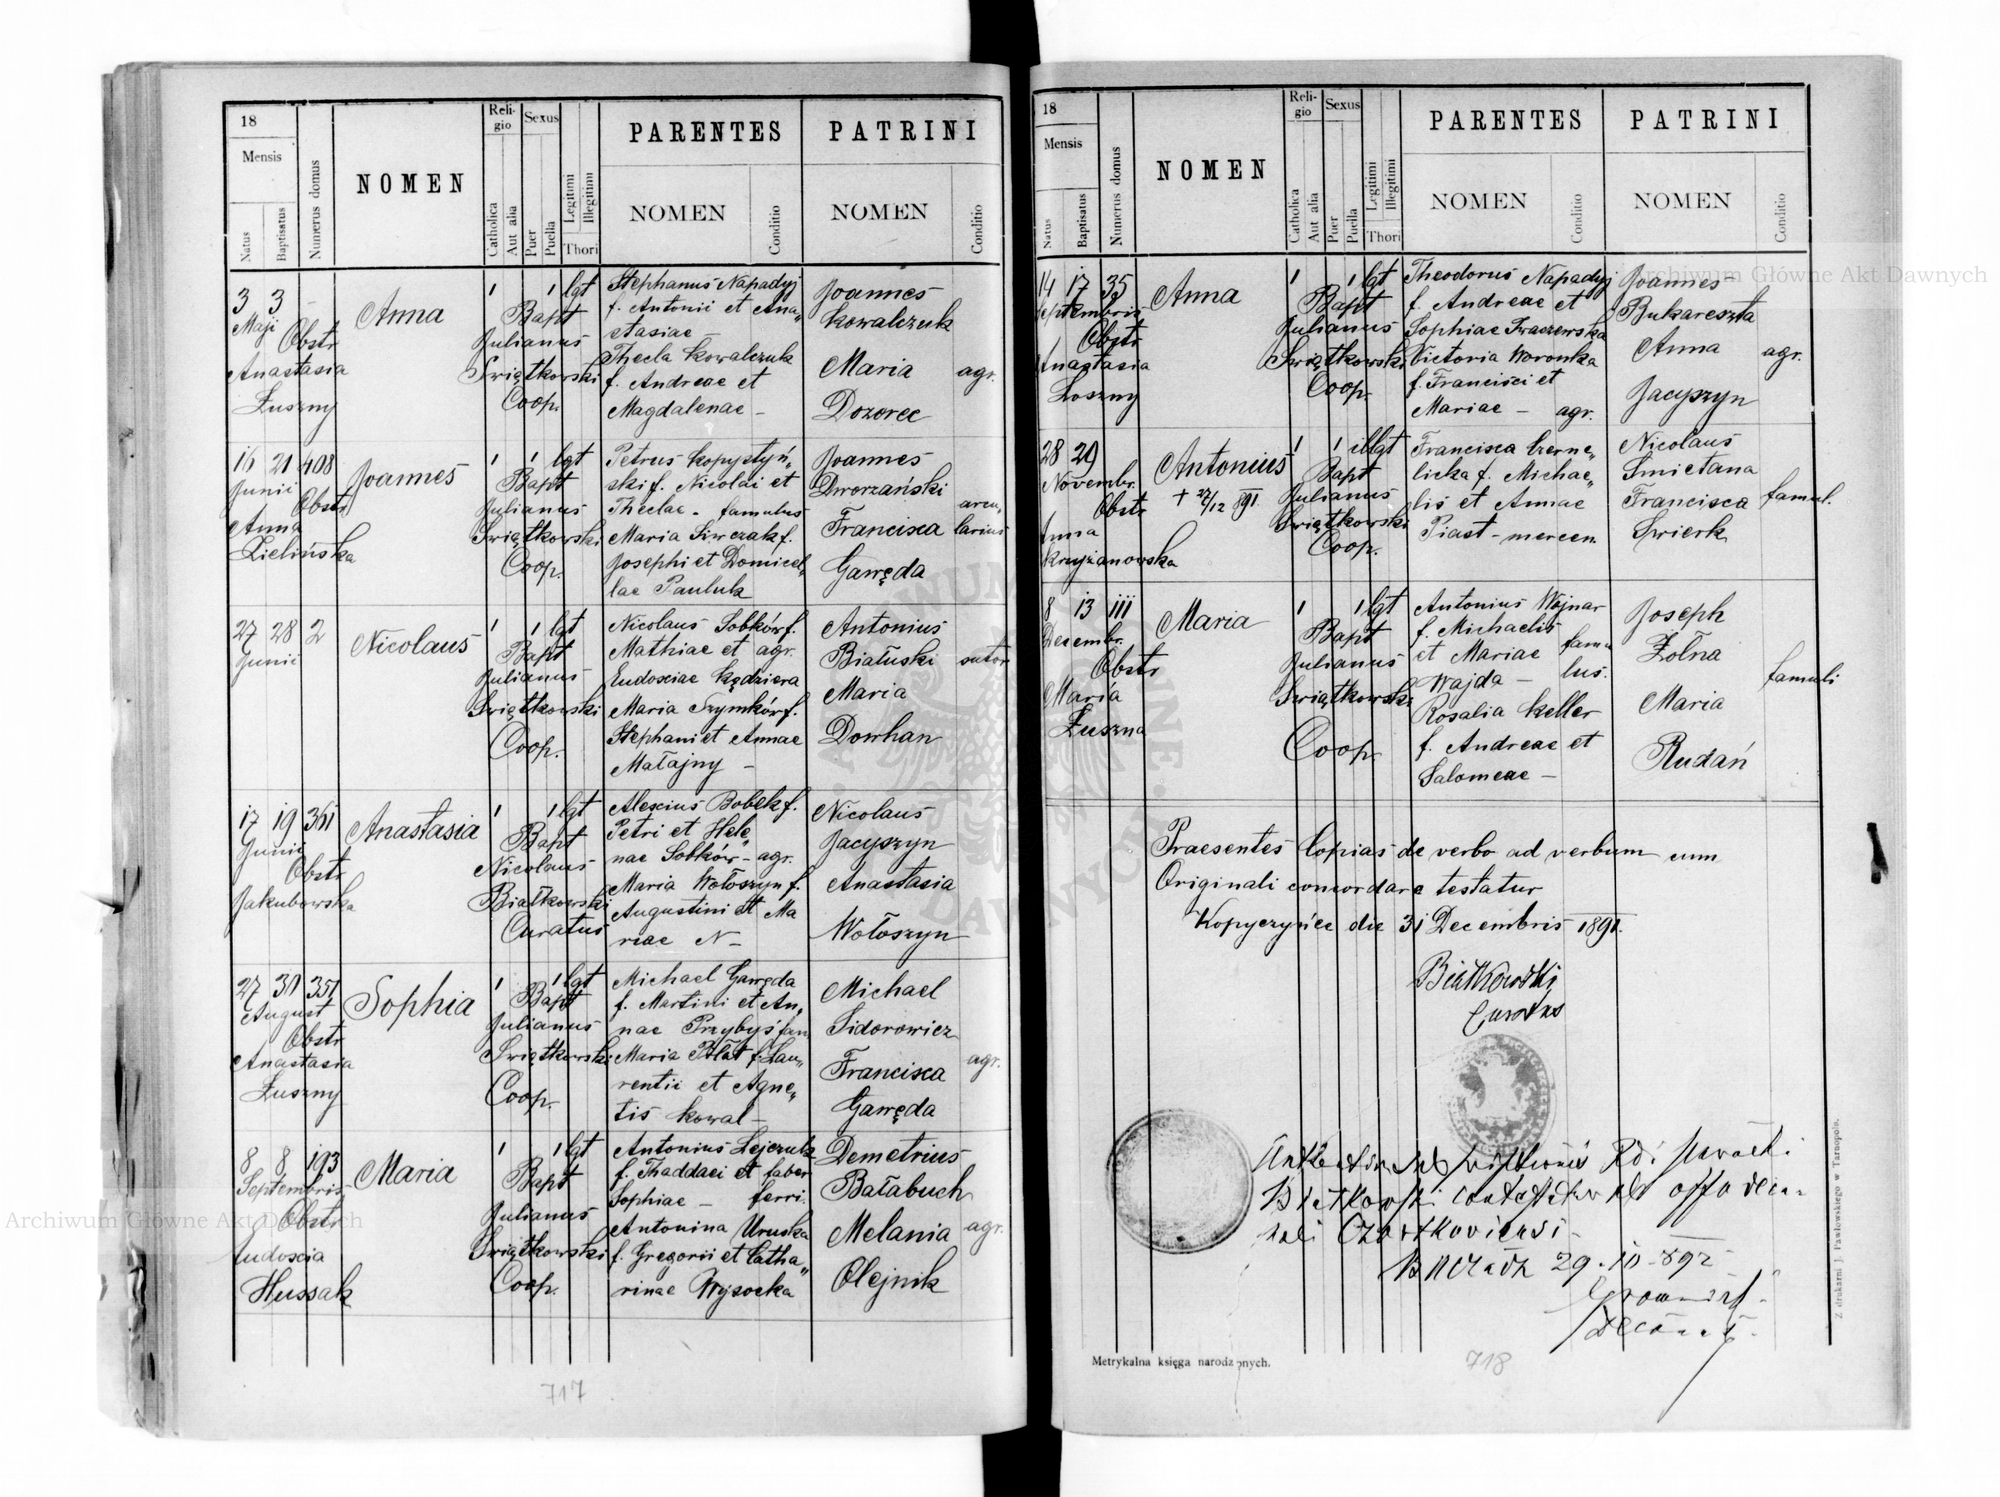 18
Mensis
Natus
Baptisatus
Numerus domus
NOMEN
Religio
Catholica
Aut alia
Sexus
Puer
Puella
Legitimi
Illegitimi
Thori
PARENTES
NOMEN
Conditio
PATRINI
NOMEN
Conditio
3 3 –
Maji
Obstr
Anastasia
Łuszny
Anna
1 1 lgt
Bapt
Julianus
Swiątkowski
Coop.
Stephanus Napadyj
f. Antonii et Ana„
stasiae –
Thecla Kowalczuk
f. Andreae et
Magdalenae –
Joannes
Kowalczuk
Maria agr.
Dozorec
16 21 408
Junii
Obstr
Anna
Zielińska
Joannes
1 1 lgt
Bapt
Julianus
Swiątkowski
Coop.
Petrus Kopystyń„
ski f. Nicolai et
Theclae - famulus
Maria Siwczak f.
Josephi et Domicel„
lae Pauluk
Joannes
Dworzański
Francisca arcu„
larius
Gawęda
27 28 2
Junii
Nicolaus
1 1 lgt
Bapt
Julianus
Swiątkowski
Coop.
Nicolaus Sobków f.
Mathiae et agr.
Eudosciae Kędziera
Maria Szymków f.
Stephani et Annae
Małajny –
Antonius
Białuski sutor
Maria
Dowhan
17 19 361
Junii
Obstr
Jakubowska
Anastasia
1 1 lgt
Bapt
Nicolaus
Białkowski
Curatus
Alexius Bobek f.
Petri et Hele„
nae Sobków - agr.
Maria Wołoszyn f.
Augustini et Ma
riae N –
Nicolaus
Jacyszyn
Anastasia
Wołoszyn
27 30 351
August
Obstr
Anastasia
Łuszny
Sophia
1 1 lgt
Bapt
Julianus
Swiątkowski
Coop.
Michael Gawęda
f. Martini et An„
nae Przybyś fam
Maria Błat f. Lau„
rentii et Agne„
tis Kowal –
Michael
Sidorowicz
agr.
Francisca
Gawęda
8 8 193
Septembris
Obstr
Eudoscia
Hussak
Maria
1 1 lgt
Bapt
Julianus
Swiątkowski
Coop.
Antonius Lejczuk
f. Thaddaei et faber
Sophiae – ferri.
Antonina Uruska
f. Gregorii et Catha„
rinae Wysocka
Demetrius
Bałabuch
Melania agr.
Olejnik
717
18
Mensis
Natus
Baptisatus
Numerus domus
NOMEN
Religio
Catholica
Aut alia
Sexus
Puer
Puella
Legitimi
Illegitimi
Thori
PARENTES
NOMEN
Conditio
PATRINI
NOMEN
Conditio
14 17 35
Septembris
Obstr
Anastasia
Loszny
Anna
1 1 lgt
Bapt
Julianus
Swiątkowski
Coop.
Theodorus Napadyj
f. Andreae et
Sophiae Swaczewska
Victoria Woronka
f. Francisci et
Mariae – agr.
Joannes
Bukareszta
Anna agr.
Jacyszyn
28 29
Novembr.
Obstr
Anna
Krzyżanowska
Antonius
+ 27/12 891
1 1 illgt
Bapt
Julianus
Swiątkowski
Coop.
Francisca Czerne„
licka f. Michae„
lis et Annae
Piast - mercen
Nicolaus
Smietana
Francisca famul.
Swierk
8 13 111
Decembr.
Obstr
Maria
Łuszna
Maria
1 1 lgt
Bapt
Julianus
Swiątkowski
Coop
Antonius Wojnar
f. Michaelis
et Mariae famu
Wajda – lus.
Rosalia Keller
f. Andreae et
Salomeae –
Joseph
Żołna
famuli
Maria
Rudań
Praesentes Copias de verbo ad verbum cum
Originali concordare testatur
Kopyczyńce die 31 Decembris 1891.
Białkowski
Curatus
Czortkoviensi
29. 10 892
Decanus
Metrykalna księga narodzonych.
718
Z drukarni J. Pawłowskiego w Tarnopolu.
Archiwum Główne Akt Dawnych
Archiwum Główne Akt Dawnych